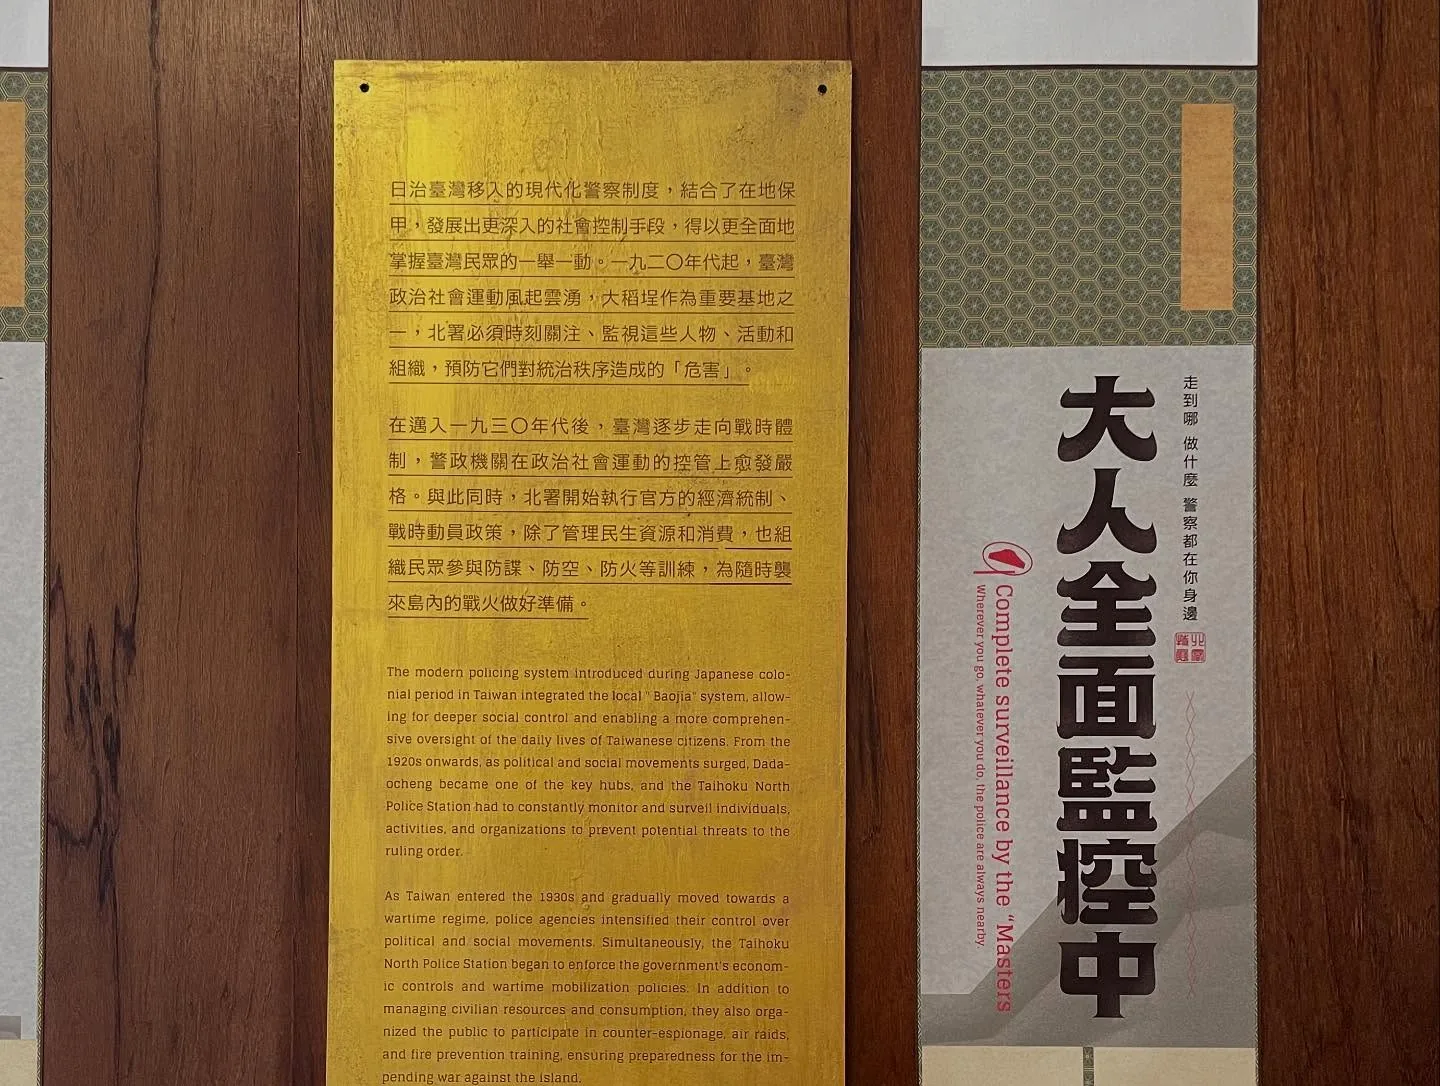 日治臺灣移入的現代化警察制度，結合了在地保
甲，發展出更深入的社會控制手段，得以更全面地
掌握臺灣民眾的一舉一動。一九二〇年代起，臺灣
政治社會運動風起雲湧，大稻埕作為重要基地之
一，北署必須時刻關注、監視這些人物、活動和
組織，預防它們對統治秩序造成的「危害」。
在邁入一九三〇年代後，臺灣逐步走向戰時體
制，警政機關在政治社會運動的控管上愈發嚴
格。與此同時，北署開始執行官方的經濟統制、
戰時動員政策，除了管理民生資源和消費，也組
織民眾參與防諜、防空、防火等訓練，為隨時襲
來島內的戰火做好準備。
The modern policing system introduced during Japanese colo-
nial period in Taiwan integrated the local " Baojia" system, allow-
ing for deeper social control and enabling a more comprehen-
sive oversight of the daily lives of Taiwanese citizens. From the
1920s onwards, as political and social movements surged, Dada-
ocheng became one of the key hubs, and the Taihoku North
Police Station had to constantly monitor and surveil individuals,
activities, and organizations to prevent potential threats to the
ruling order.
As Taiwan entered the 1930s and gradually moved towards a
wartime regime, police agencies intensified their control over
political and social movements. Simultaneously, the Taihoku
North Police Station began to enforce the government's econom-
ic controls and wartime mobilization policies. In addition to
managing civilian resources and consumption, they also orga-
nized the public to participate in counter-espionage, air raids,
and fire prevention training, ensuring preparedness for the im-
pending war against the island.
走到哪 做什麼 警察都在你身邊
大人全面監控中
Complete surveillance by the "Masters
Wherever you go, whatever you do, the police are always nearby.